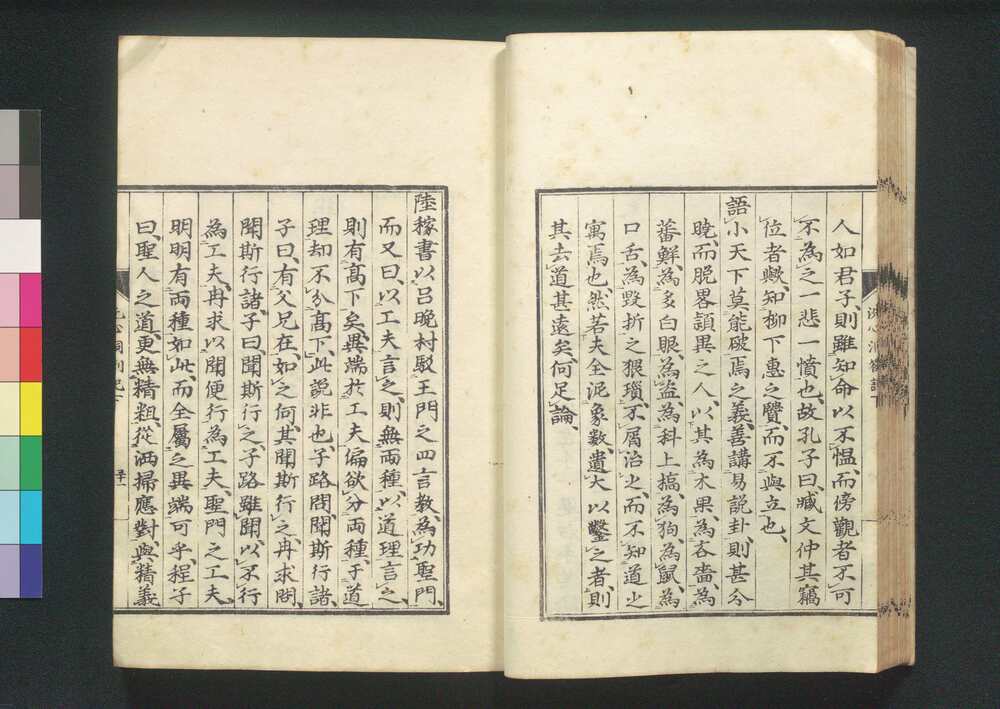 人如君子則雖知命以不慍、而傍觀者不可
不為之一悲一憤也、故孔子曰、臧文仲其竊
位者歟、知柳下惠之賢、而不與立也、
語小天下莫能破焉之義、善講易說卦、則甚分
曉、而脫畧穎異之人、以其為木果、為吝嗇、為
蕃鮮、為多白眼、為盜、為科上槁、為狗、為鼠、為
口舌、為毀折之猥瑣、不屑治之、而不知道之
寓焉也、然若夫全泥象數、遺大以鑿之者、則
其去道甚遠矣、何足論、
陸稼書以呂晚村駁王門之四言教、為功聖門、
而又曰、以工夫言之、則無兩種、以道理言之、
則有高下矣、異端於工夫偏欲分兩種、于道
理却不分高下、此說非也、子路問聞斯行諸、
子曰、有父兄在、如之何、其聞斯行之、冉求問、
聞斯行諸、子曰、聞斯行之、子路雖聞、以不行
為工夫、冉求以聞便行為工夫、聖門之工夫、
明明有兩種如此、而全屬之異端可乎、程子
曰、聖人之道、更無精粗、從洒掃應對、與精義